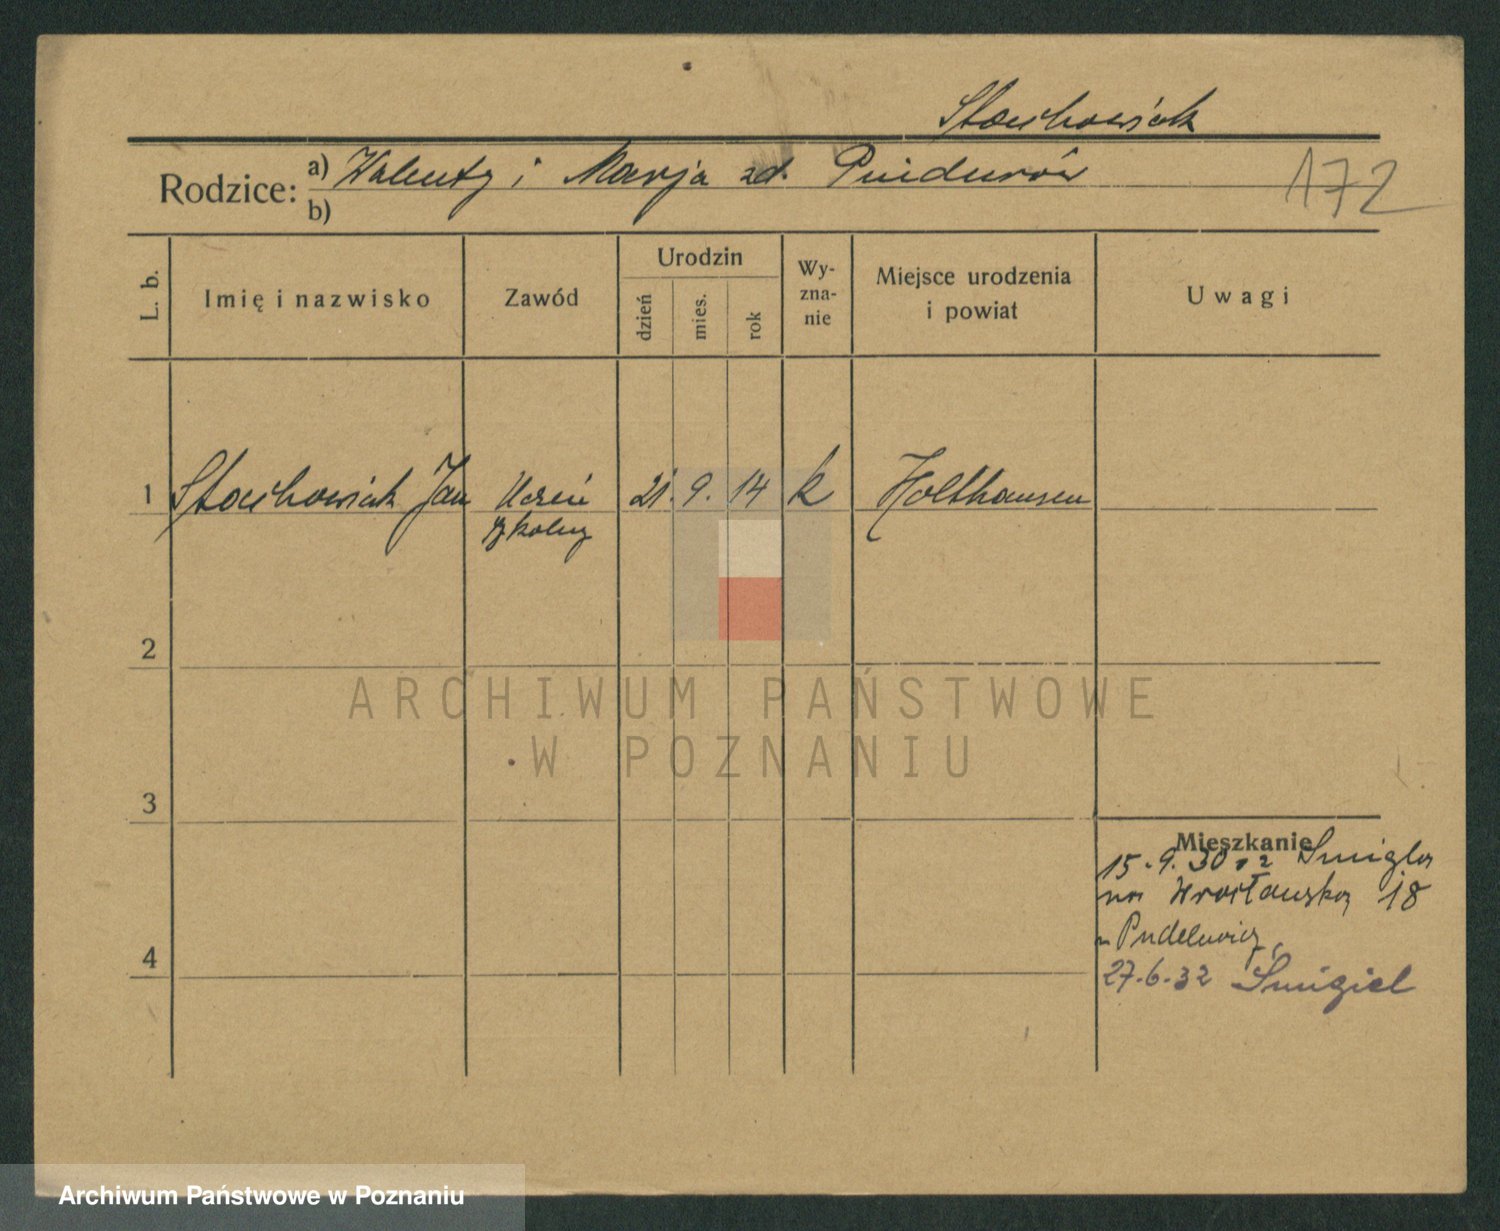 Stachowiak
Rodzice: a) Walenty i Marja zd.
b)
172
L. b.
Imię i nazwisko
Zawód
Urodzin
dzień
mies.
rok
Wy-
zna-
nie
Miejsce urodzenia
i powiat
Uwagi
1 Stachowiak Jan Uczeń 21. 9. 14 k Holthausen
szkolny
2
ARCHIWUM PAŃSTWOWE
W POZNANIU
3
Mieszkanie
15.9.30 z Śmigla
na Wrocławską 18
27.6.32 Śmigiel
4
Archiwum Państwowe w Poznaniu